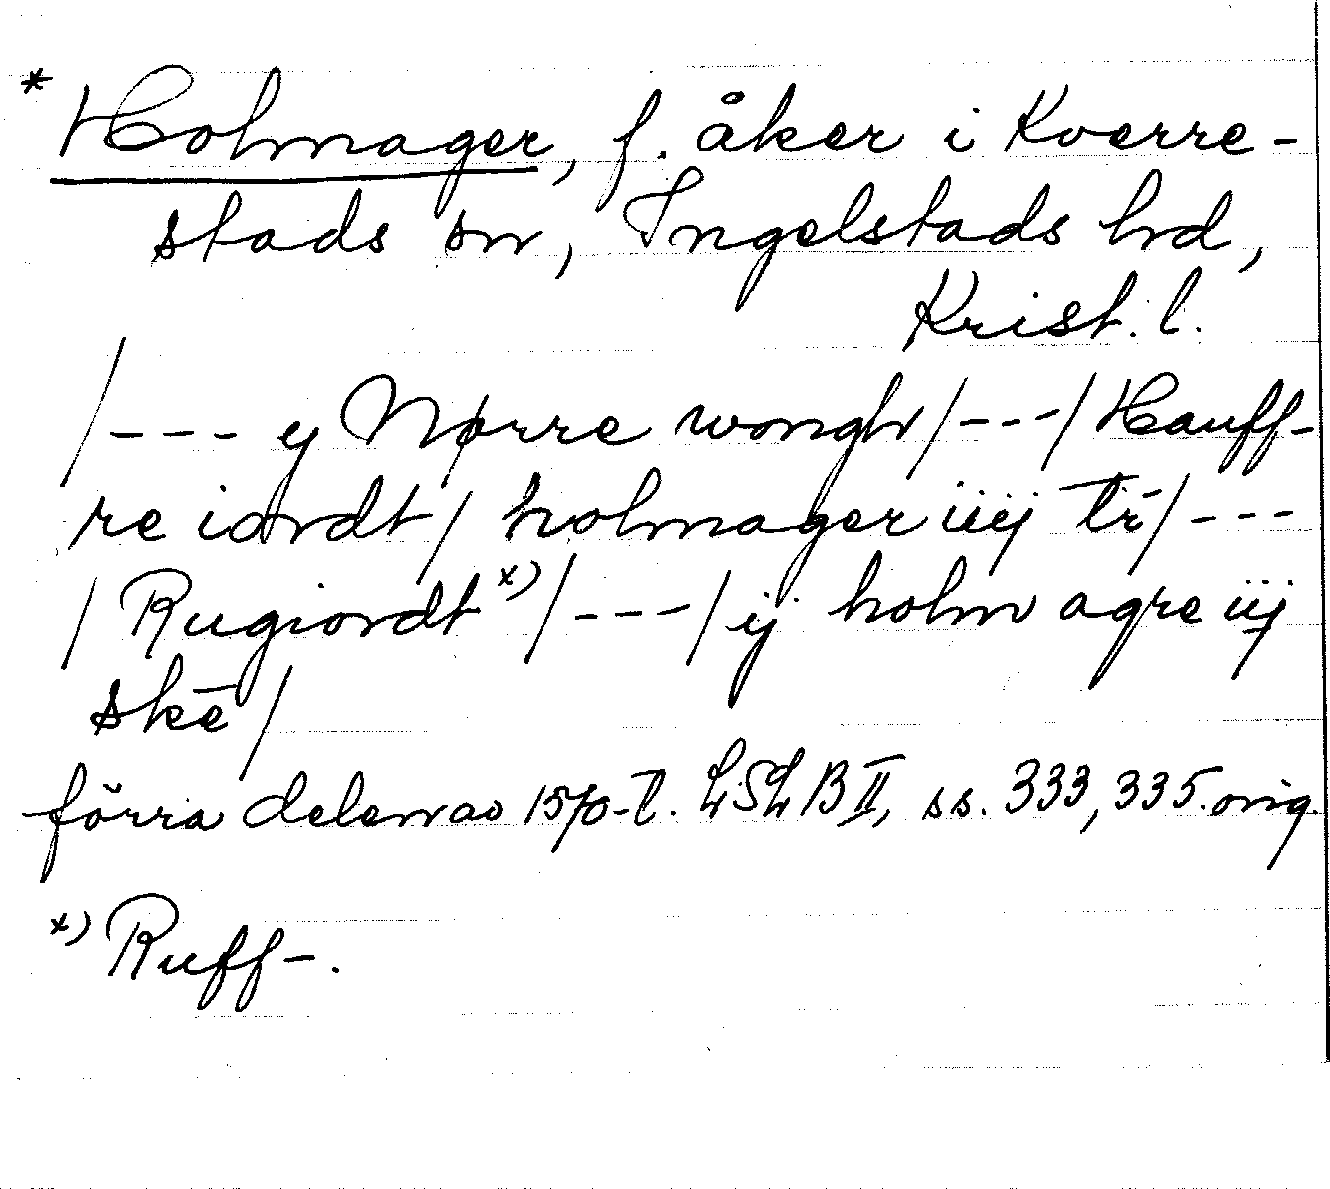 * Holmager, f. åker i Kverre-
stads sn, Ingelstads hd,
Krist. l.
/--- y Nørre wongh/---/Hauff-
re iordt/ holmager iiij tr̄/---
/Rugiordt x)/---/ij holm agre iij
skē/
förra delen av 1570-t. LSLB II, ss. 333, 335. orig.
x) Ruff-.